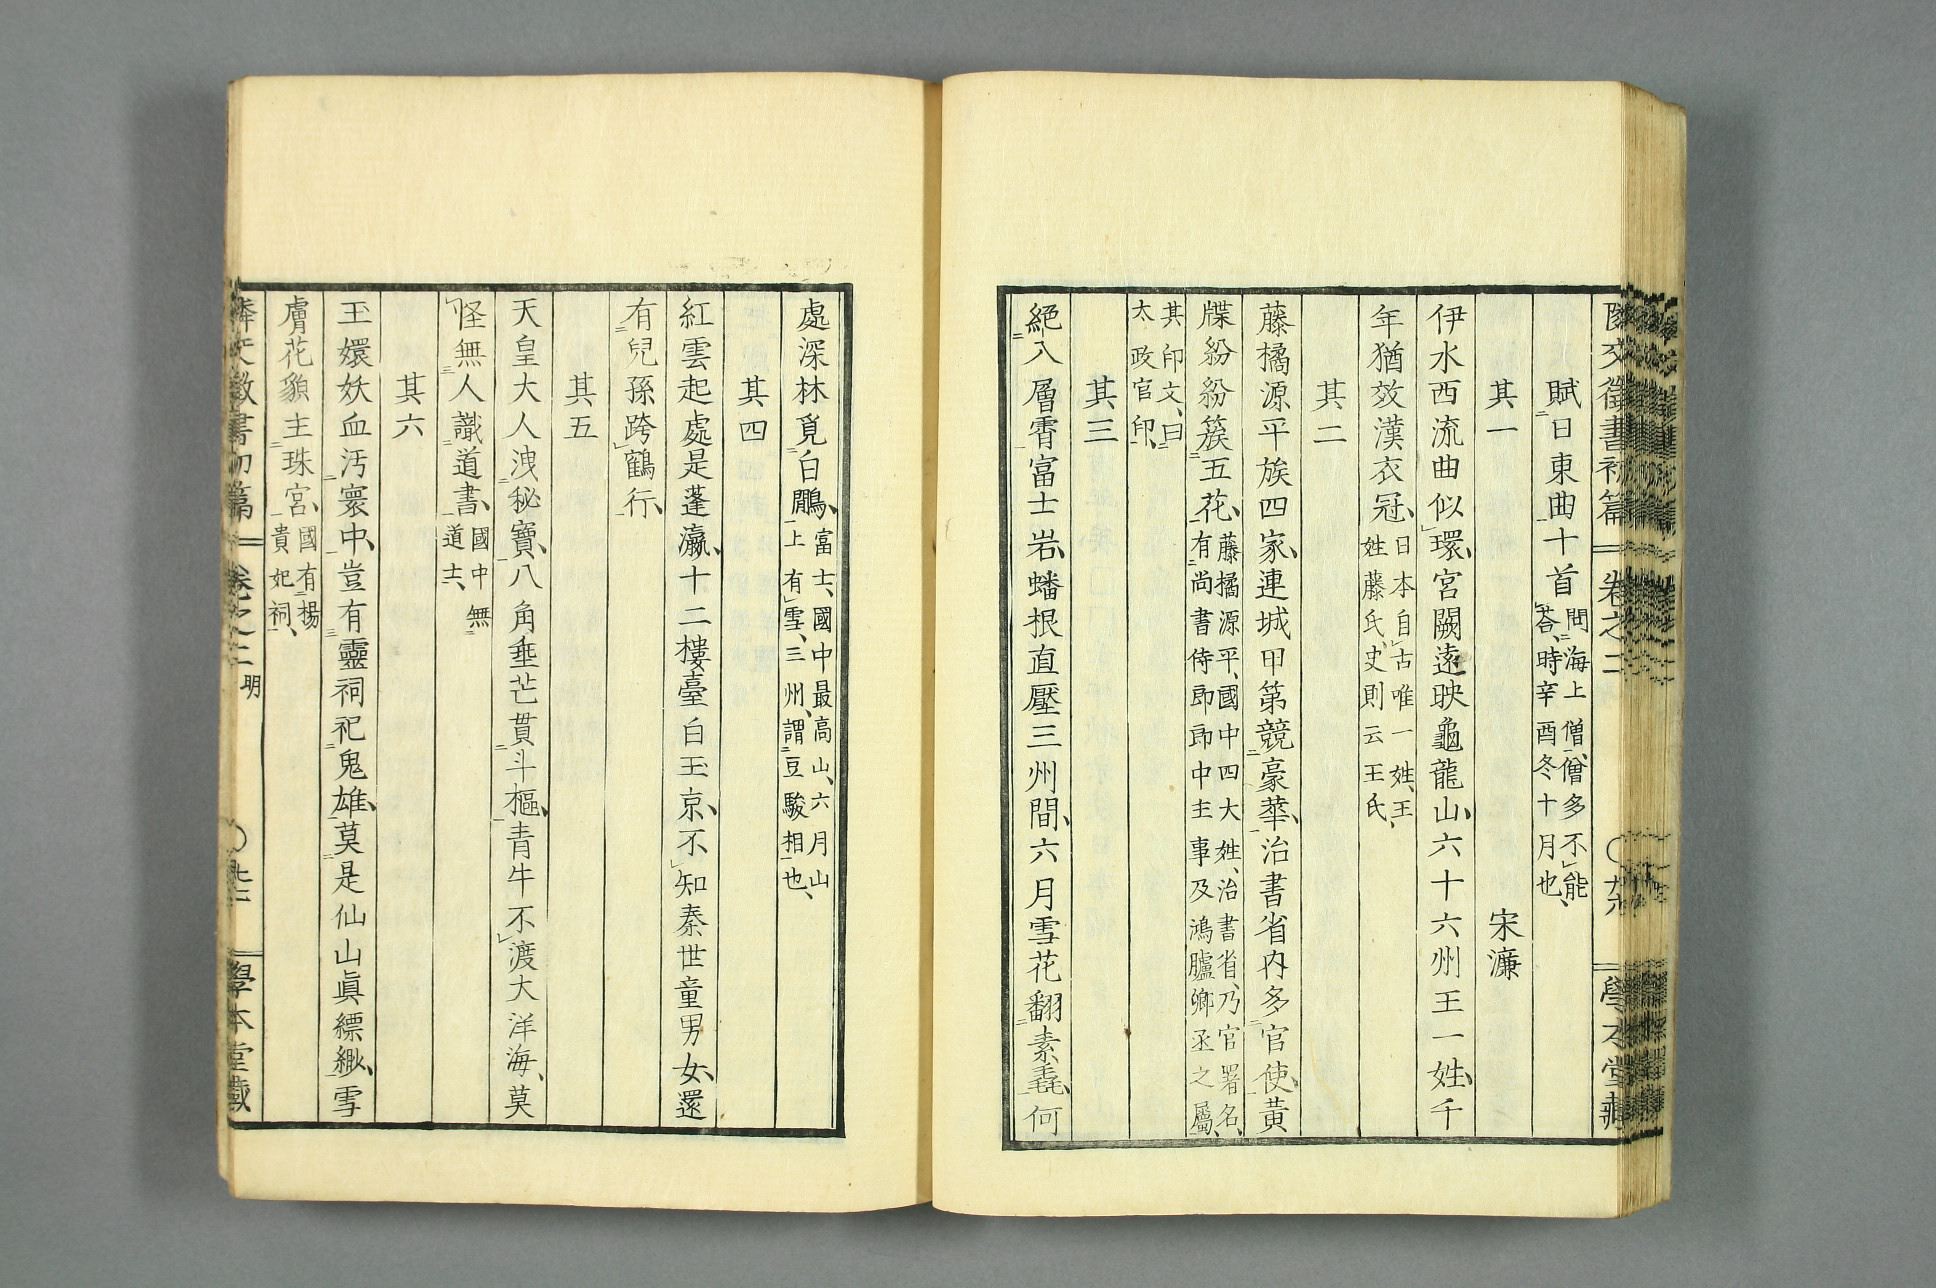 鄰交徵書初篇 卷之二 學本堂藏
賦日東曲十首 問海上僧、僧多不能
荅、時辛酉冬十月也、
其一 宋濂
伊水西流曲似環、宮闕遠映龜龍山、六十六州王一姓、千
年猶效漢衣冠、日本自古唯一姓、王
姓藤氏、史則云王氏、
其二
藤橘源平族四家、連城甲第競豪華、治書省內多官使、黃
牒紛紛簇五花、藤橘源平、國中四大姓、治書省、乃官署名、
有尚書侍郎郎中主事及鴻臚卿丞之屬、
其印文、曰
太政官印、
其三
絕入層霄富士岩、蟠根直壓三州間、六月雪花翻素毳、何
處深林覓白鷴、富士、國中最高山、六月山
上有雪、三州、謂豆駿相也、
其四
紅雲起處是蓬瀛、十二樓臺白玉京、不知秦世童男女、還
有兒孫跨鶴行、
其五
天皇大人洩秘寶、八角垂芒貫斗樞、青牛不渡大洋海、莫
怪無人識道書、國中無
道士、
其六
玉嬛妖血汚寰中、豈有靈祠祀鬼雄、莫是仙山眞縹緲、雪
膚花貌主珠宮、國有楊
貴妃祠、
鄰交徵書初篇 卷之二 明 學本堂藏